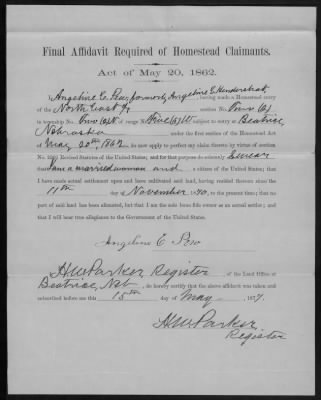 Final Affidavit Required of Homestead Claimants.
Act of May 20, 1862.
I, Angeline E. Pew formerly Angeline E. Hendershot, having made a Homestead entry
of the North East 1/4 section No. Four (4)
in township No. Two (2) N of range No. Five (5) W subject to entry at Beatrice,
Nebraska under the first section of the Homestead Act
of May 20th 1862, do now apply to perfect my claim thereto by virtue of section
No. Revised Statutes of the United States; and for that purpose do solemnly Swear
that I am a married woman and a citizen of the United States; that I
have made actual settlement upon and have cultivated said land, having resided thereon since the
11th day of November 1870, to the present time; that no
part of said land has been alienated, but that I am the sole bona fide owner as an actual settler; and
that I will bear true allegiance to the Government of the United States.
Angeline E. Pew
I, HW Parker Register, of the Land Office at
Beatrice, Neb, do hereby certify that the above affidavit was taken and
subscribed before me this 15th day of May 187
HW Parker
Register